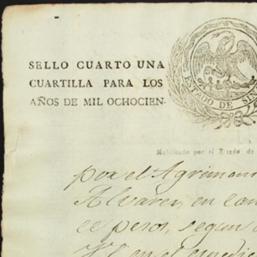 SELLO CUARTO UNA
CUARTILLA PARA LOS
AÑOS DE MIL OCHOCIEN-
ESTADO DE
Habilitado por el Estado de
por el Agrimen
Alvarez, en can
de pesos, segun